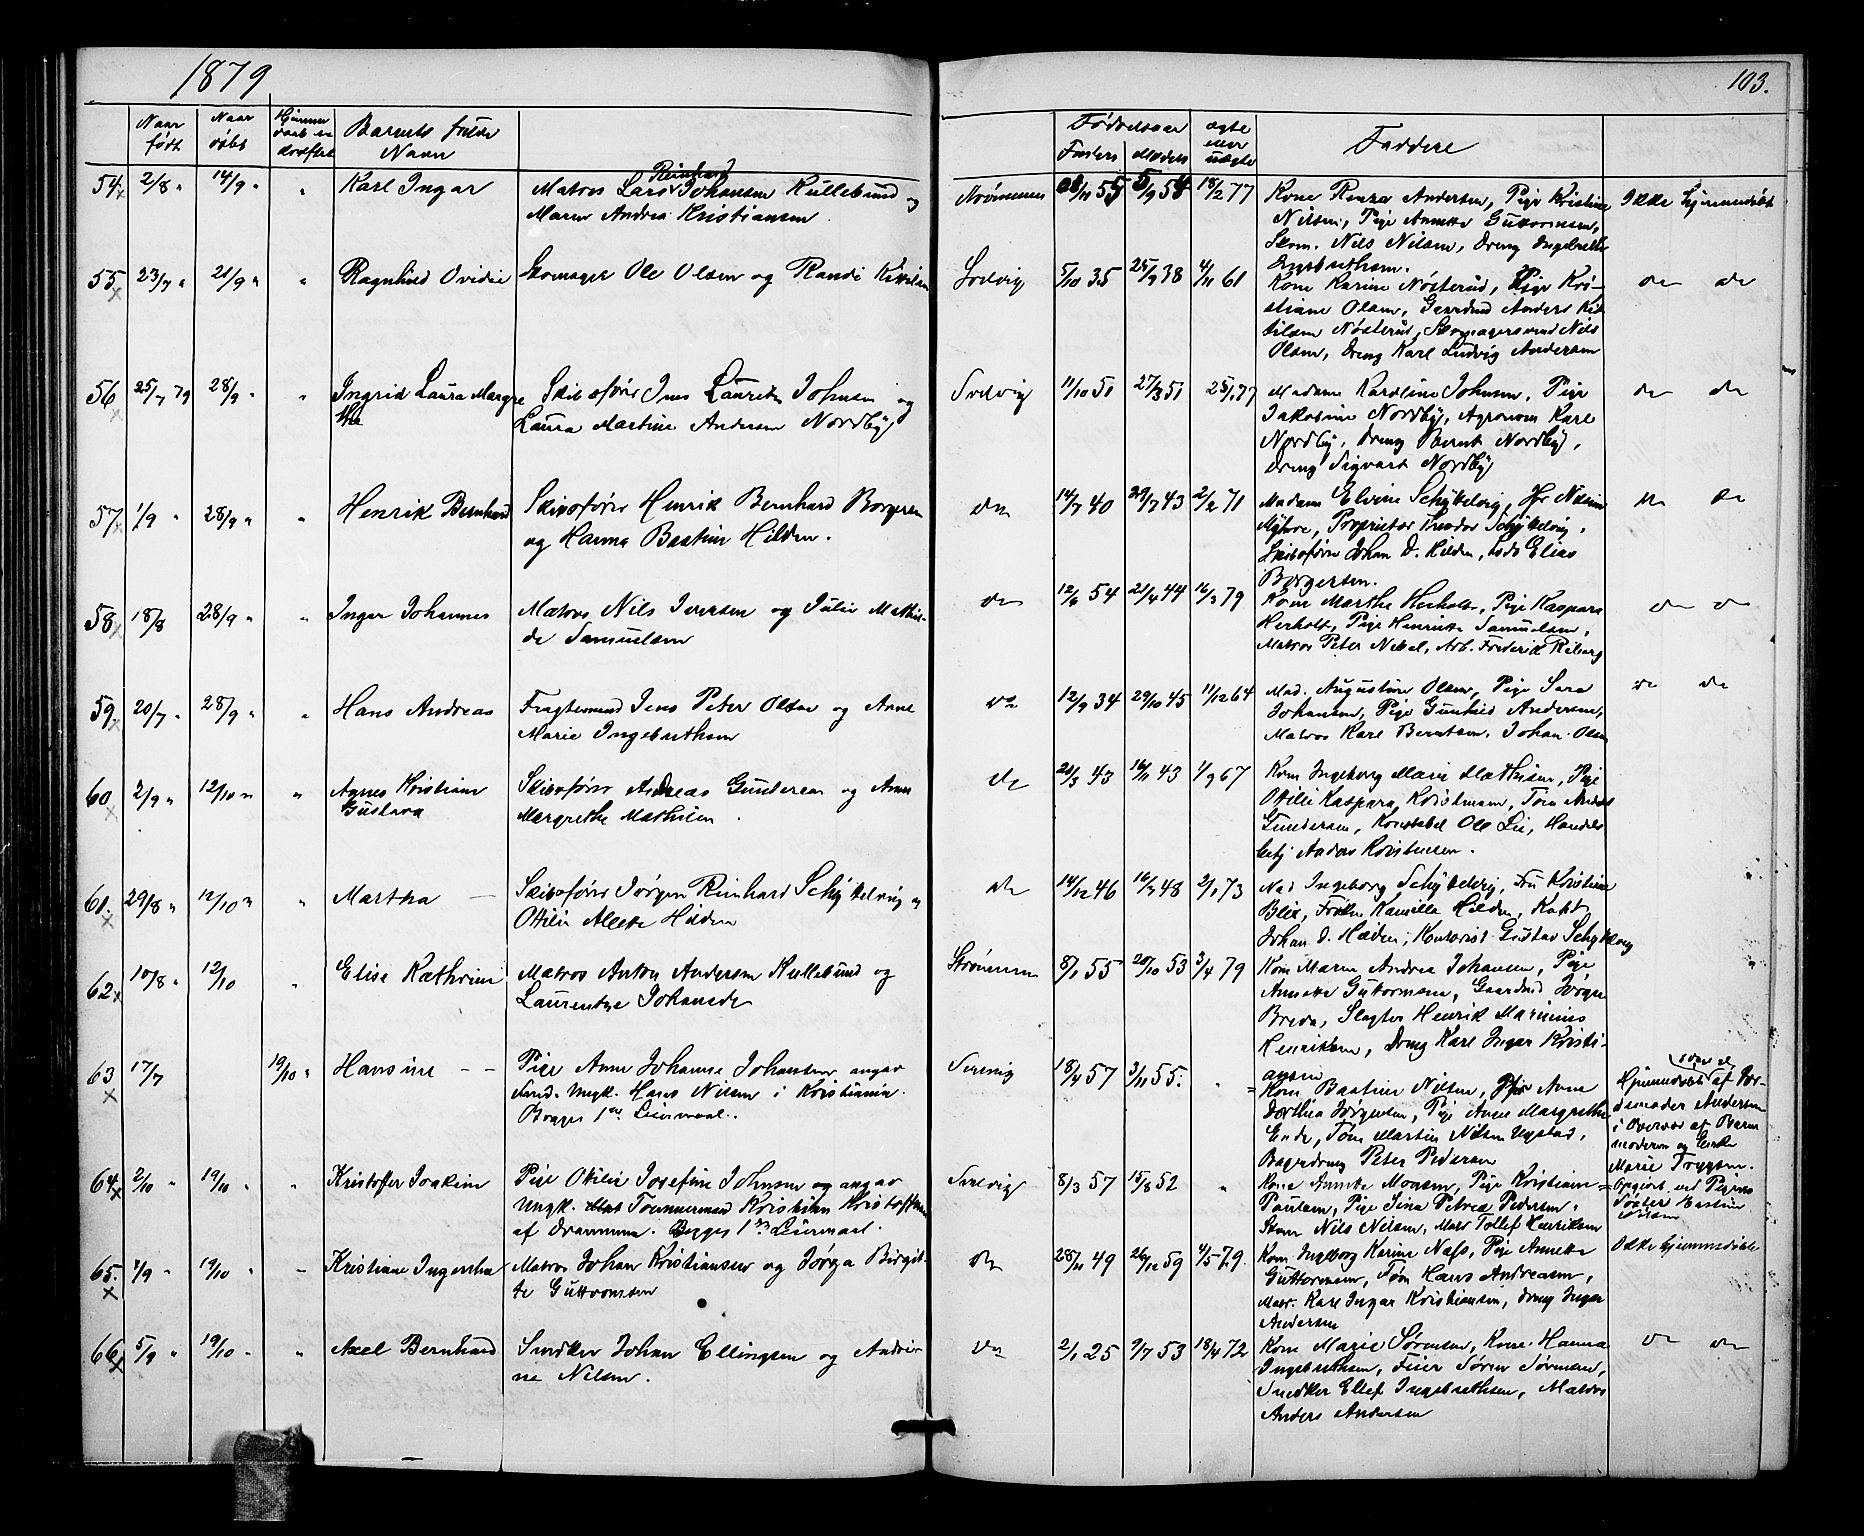 1879
103.
Naar født
Naar døbt
Hjemmedaab er stadfæstet
Barnets fulde Navn
Fødselsaar
Faders
Moders
ægte eller uægte
Faddere
54 2/8 " 14/9 " " Karl Ingar
Reinhard
Matros Lars Johansen Kullebund og
Maren Andrea Kristiansen.
Strømmen 55 5/9 54 18/2 77
Kone Andersen, Pige Kristine
Nilsen, Pige Annette Guttormsen,
Skom. Nils Nilsen, Dreng Ingebreth
Ingebrethsen.
Ikke hjemmedøbt
55 23/7 " 21/9 " " Ragnhild Ovidie
Skomager Ole Olsen og Randi Kittilsen
Svelvig 5/10 35 25/7 38 4/11 61
Kone Karine Nøsterud, Pige Kri-
stiane Olsen, Gaardmd Anders Kit-
tilsen Nøsterud, Skomagersvend Nils
Olsen, Dreng Karl Ludvig Andersen
do do
56 25/7 79 28/9 " " Ingrid Laura Margre
the
Skibsfører Jens Lauritz Johnsen og
Laura Martine Andersen Nordby
Svelvig 11/10 51 27/3 51 25/1 77
Madame Karoline Johnsen, Pige
Jakobine Nordby, Agronom Karl
Nordby, Dreng Bernt Nordby,
Dreng Sigvart Nordby
do do
57 1/9 " 28/9 " " Henrik Bernhard
Skibsfører Henrik Bernhard Borgersen
og Hanna Bastine Hilden.
do 14/7 40 29/7 43 2/2 71
Madam Elvine Schykelvig,
Myhre, Proprietær Theodor Schykelvig,
Skibsfører Johan D. Hilden, Elias
Borgersen.
do do
58 18/8 28/9 " " Inger Johannes
Matros Nils Iversen og Julie Mathil-
de Samuelsen
do 12/6 54 21/4 44 16/3 79
Kone Marthe Herholt, Pige Kaspara
Herholt, Pige Henriette Samuelsen,
Matros Peter Nebel, Arb. Frederik Riberg
do do
59 20/7 " 28/9 " " Hans Andreas
Fragtemand Jens Peter Olsen og Anne
Marie Ingebrethsen
do 12/9 34 29/10 45 11/12 64
Mad. Augustine Olsen, Pige Sara
Johansen, Pige Gunhild Andersen,
Matros Karl Berntsen, Johan Olsen
do do
60 2/9 " 12/10 " " Agnes Kristiane
Gustava
Skibsfører Andreas Gundersen og Anne
Margrethe Mathisen.
do 21/3 43 16/11 43 1/9 67
Kone Ingeborg Marie Mathisen, Pige
Otilie Kaspara Kristensen, Tøm. Anders
Gundersen, Konstabel Ole Lie, Handels
betj Anders Kristensen.
61. 29/8 " 12/10 " " Martha
Skibsfører Jørgen Reinhard Schykelvig og
Otilie Alette Hilden
do 14/12 46 16/7 48 2/1 73
Mad Ingeborg Schykelvig, Fru Kristine
Blix, Frøken Kamilla Hilden, Kapt
Johan D. Hilden, Kontorist Gustav Schykelvig
62 10/8 " 12/10 " Elise Kathrine
Matros Anton Andersen Kullebund og
Laurentze Johansdr
Strømmen 8/1 55 20/10 53 3/4 79
Kone Maren Andrea Johansen, Pige
Annette Guttormsen, Gaardmd Jørgen
Breda, Slagter Henrik Marinius
Henriksen, Dreng Karl Ingar Kristi-
ansen
63 17/7 19/10 " Hansine
Pige Anne Johanne Johansen angav
Ungk. Hans Nilsen i Kristiania
Begges 1ste Leiermaal.
Svelvig 18/4 57 3/11 55. "
Kone Bastine Nilsen, Anne
Dorthea Jørgensen, Pige Anne Margrethe
Ende, Tøm Martin Nilsen Ugstad,
Bagerdreng Peter Pedersen
Hjemmedøbt af Jor-
demoder Andersen
i Overvær af Barne
moderen og Enke
Marie Tryggsen.
Opgivet ved Pigens
Søster Bastine
Nilsen
64 2/10 " 19/10 " " Kristoffer Joakim
Pige Otilie Josefine Johnsen og angav
Ungk. Tømmermand Kristian Kristoffersen
af Drammen. Begges 1ste Leiermaal.
Svelvig 8/3 57 15/8 52 "
Kone Annette Monsen, Pige Kristiane
Paulsen, Pige Sina Petrea Pedersen,
Skom Nils Nilsen, Matr Tollef Henriksen
65. 1/9 " 19/10 " Kristiane Ingertha
Matros Johan Kristiansen og Jørga Birgit-
te Guttormsen
do 28/11 49 26/12 59 4/5 79.
Kone Ingeborg Karine Næss, Pige Annette
Guttormsen, Tøm Hans Andreasen,
Matr. Karl Ingar Kristiansen, Dreng Inger
Andersen
Ikke hjemmedøbt
66 5/9 " 19/10 " " Axel Bernhard
Snedker Johan Ellingsen og Andri-
ne Nilsen.
do 2/1 25 9/7 53 18/4 72
Kone Marie Sørensen, Kone Hanna
Ingebrethsen, Feier Søren Sørensen,
Snedker Ellef Ingebrethsen, Matros
Anders Andersen
do do